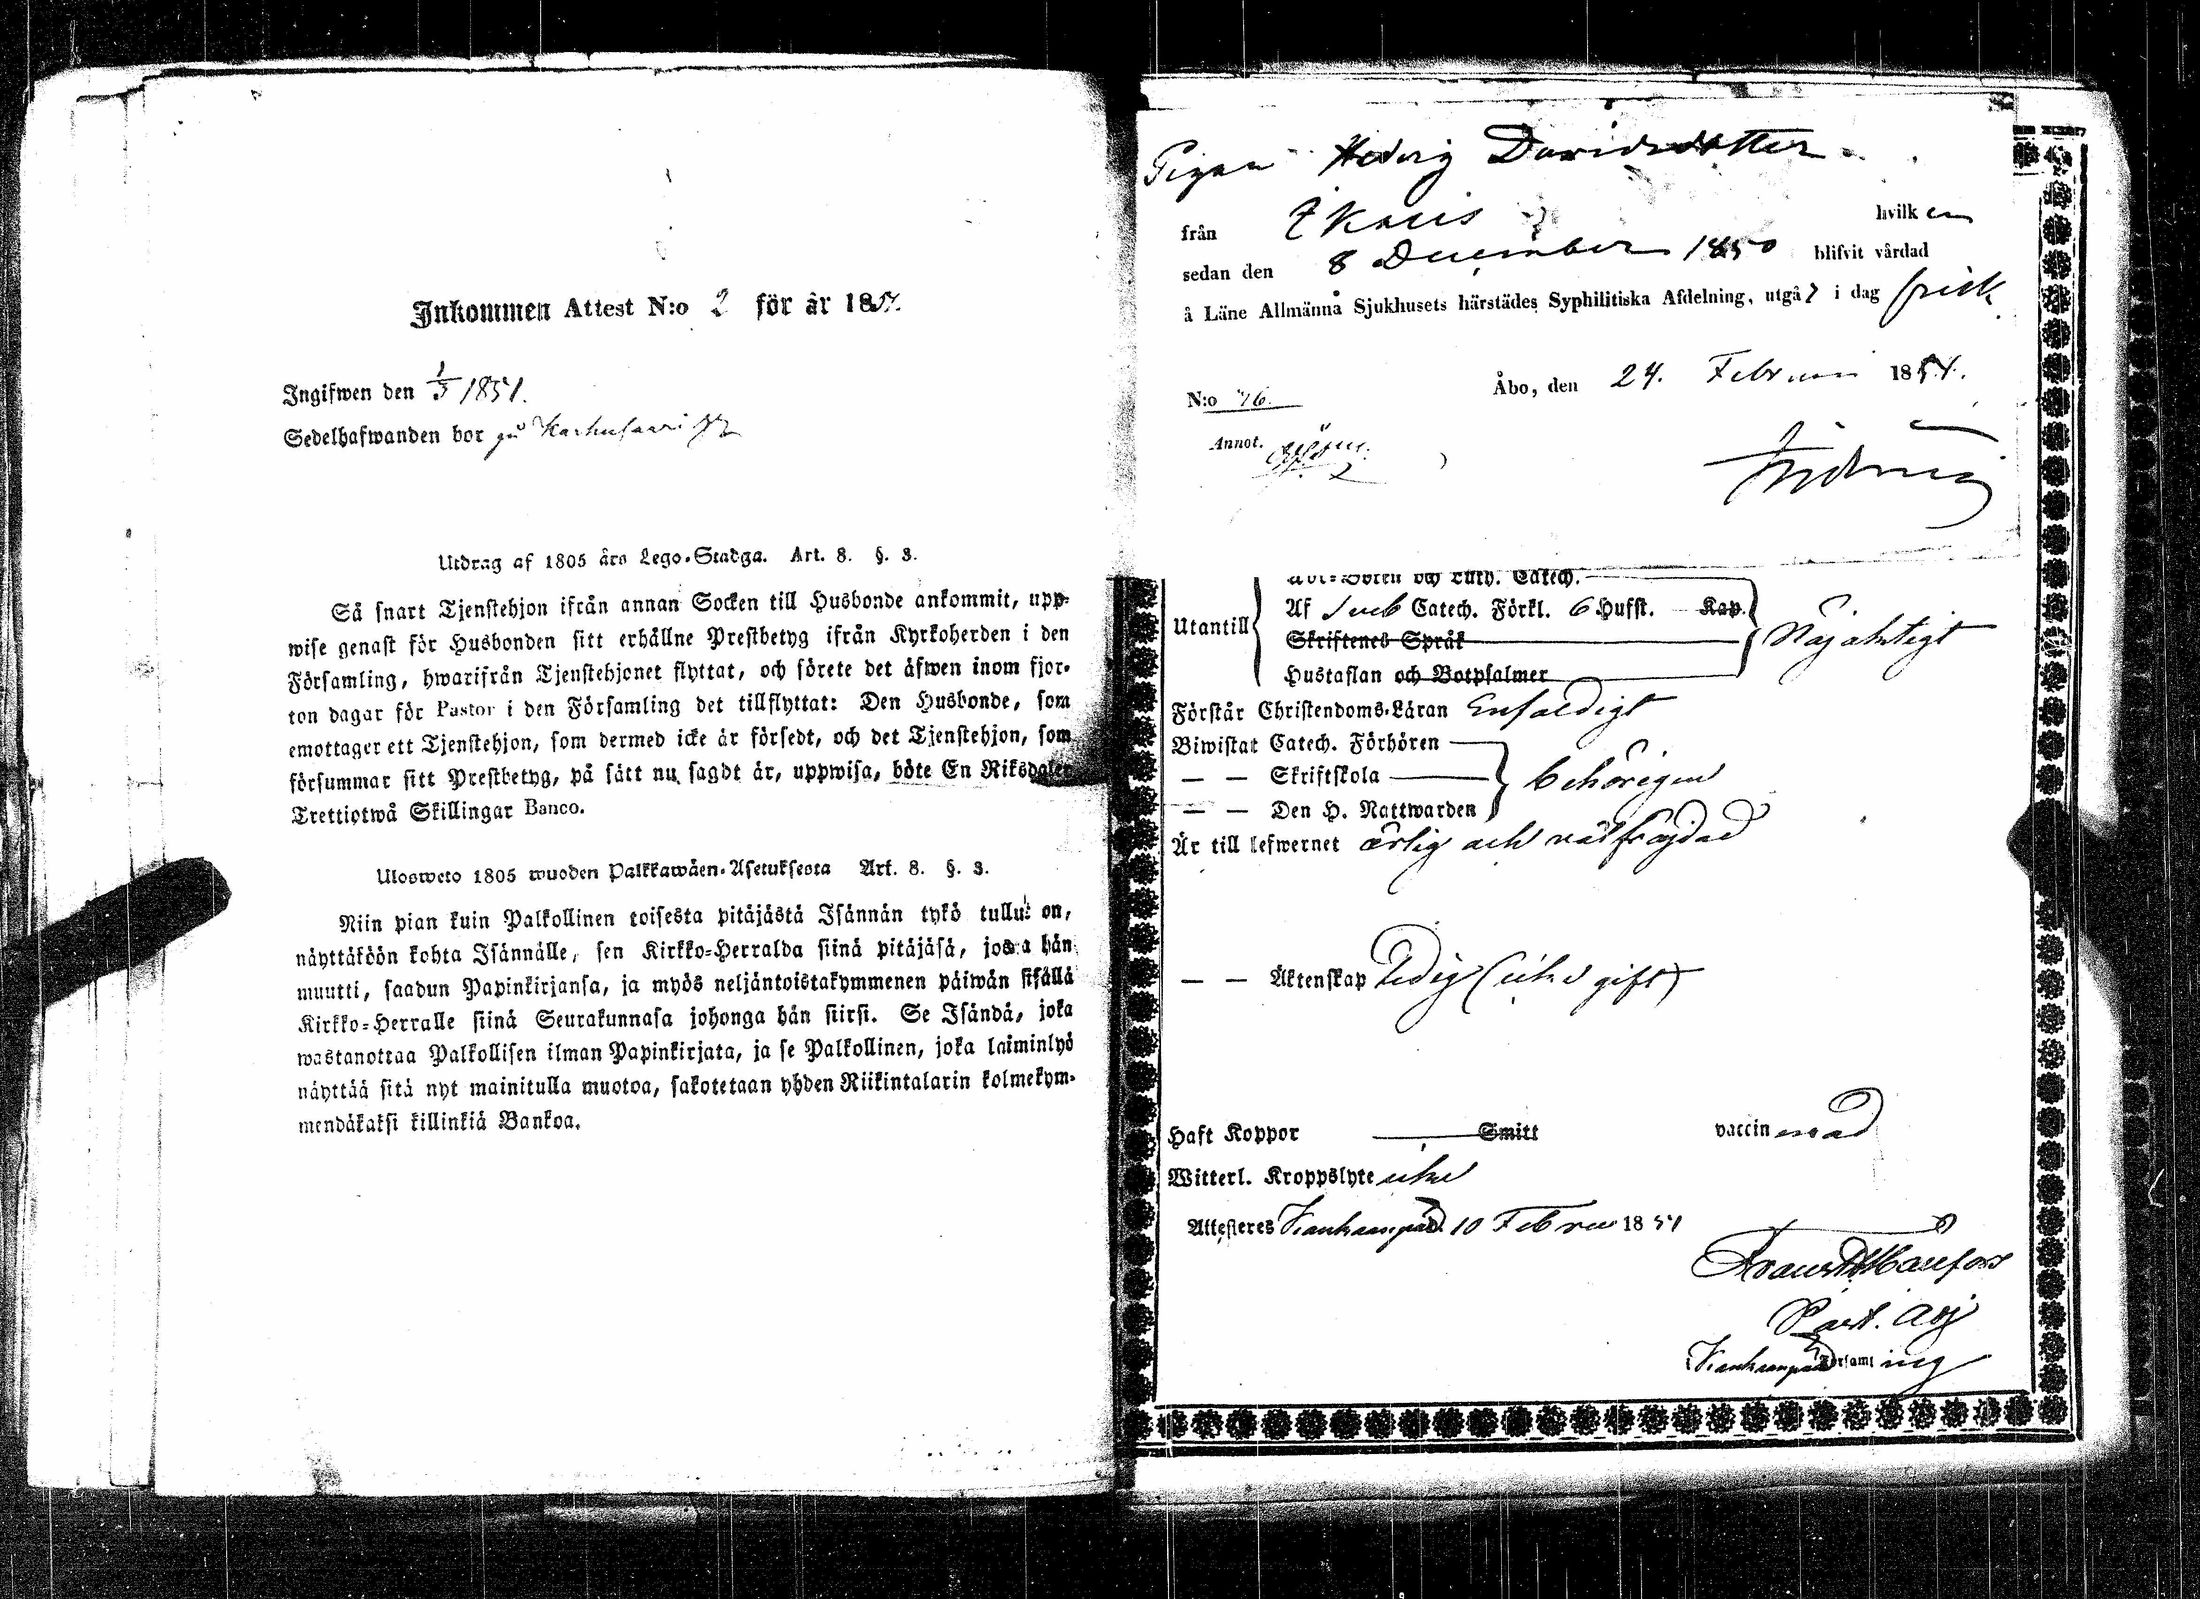 Inkommen Attest N:o 2 för år 1851.
Ingifwen den 1/3 1851.
Sedelhafwanden bor på Karhusaari
Utdrag af 1805 års Lego-Stadga. Art. 8. §. 3.
Så snart Tjenstehjon ifrån annan Socken till Husbonde ankommit, upp-
wise genast för Husbonden sitt erhållne Prestbetyg ifrån Kyrkoherden i den
Församling, hwarifrån Tjenstehjonet flyttat, och förete det äfwen inom fjor-
ton dagar för Pastor i den Församling det tillflyttat: Den Husbonde, som
emottager ett Tjenstehjon, som dermed icke är försedt, och det Tjenstehjon, som
försummar sitt Prestbetyg, på sätt nu sagdt är, uppwisa, böte En Riksdaler
Trettiotwå Skillingar Banco.
Ulosweto 1805 wuoden Palkkawäen-Asetuksesta Art. 8. §. 3.
Niin pian kuin Palkollinen toisesta pitäjästä Isännän tykö tullut on,
näyttäköön kohta Isännälle, sen Kirkko-Herralda siinä pitäjäsä, josta hän
muutti, saadun Papinkirjansa, ja myös neljäntoistakymmenen päiwän sisällä
Kirkko-Herralle siinä Seurakunnasa johonga hän siirsi. Se Isändä, joka
wastanottaa Palkollisen ilman Papinkirjata, ja se Palkollinen, joka laiminlyö
näyttää sitä nyt mainitulla muotoa, sakotetaan yhden Riikintalarin kolmekym-
mendäkaksi killinkiä Bankoa.
Pigan Hedvig Davidsdotter
från hvilken
sedan den 8 December 1850 blifvit vårdad
å Läne Allmänna Sjukhusets härstädes Syphilitiska Afdelning, utgår i dag frisk.
Åbo, den 24. Februari 1851.
N:o 76.
Annot.
Abc-Boken och Luth. Catech.
Utantill Af Catech. Förkl. 6 Hufst. Kap.
Skriftenes Språk
Hustaflan och Botpsalmer
Nöjaktigt
Förstår Christendoms-Läran Enfaldigt
Biwistat Catech. Förhören
— — Skriftskola behörigen
— — Den H. Nattwarden
Är till lefwernet ärlig och välfrejdad
— — Äktenskap ledig (icke gift)
Haft Koppor Smitt vaccinerad
Witterl. Kroppslyte icke
Attesteres Kankaanpää 10 Febru 1851
Past. Adj
Kankaanpää Församling